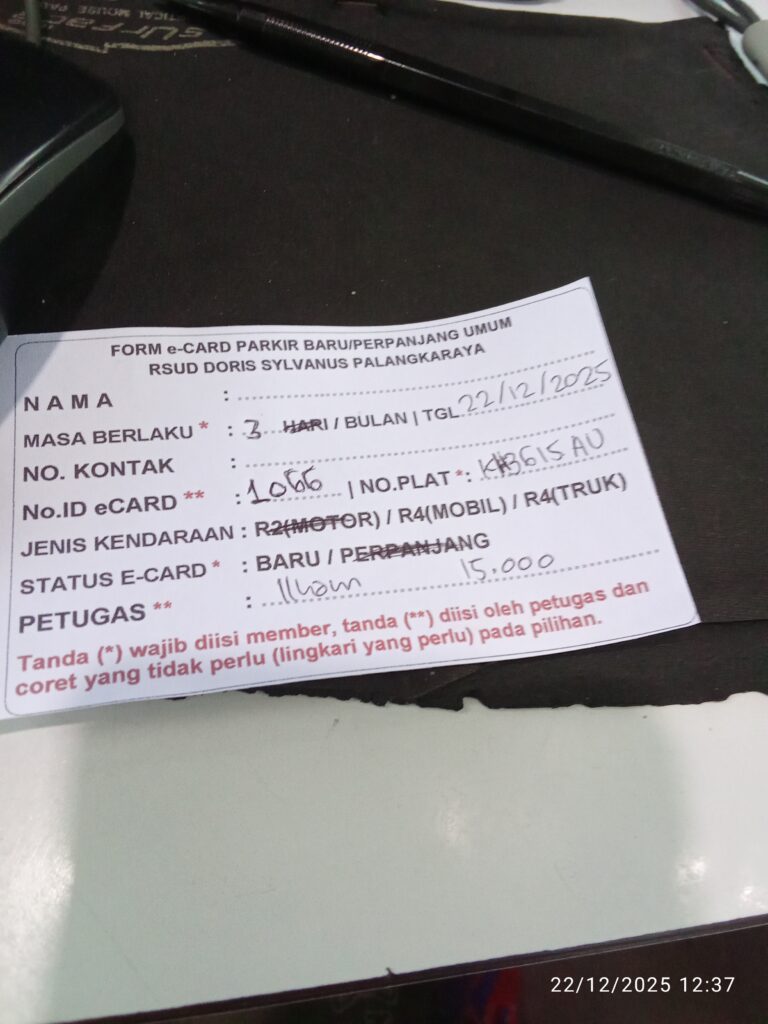 OPTICAL MOUSE PAD
FORM e-CARD PARKIR BARU/PERPANJANG UMUM
RSUD DORIS SYLVANUS PALANGKARAYA
NAMA :
MASA BERLAKU * : 3 HARI / BULAN | TGL 22/12/2025
NO. KONTAK :
No.ID eCARD ** : 1066 | NO.PLAT *: KH3615 AU
JENIS KENDARAAN : R2(MOTOR) / R4(MOBIL) / R4(TRUK)
STATUS E-CARD * : BARU / PERPANJANG
PETUGAS ** : Ilham 15.000
Tanda (*) wajib diisi member, tanda (**) diisi oleh petugas dan
coret yang tidak perlu (lingkari yang perlu) pada pilihan.
22/12/2025 12:37